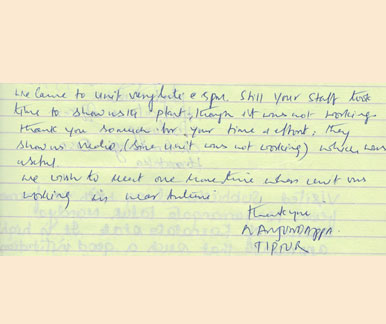 we came to unit very late e spm. still your staff took
time to show us the plant, though it was not working.
thank you so much for your time & effort, they
show us vedio, (some unit was not working) which was
useful.
we wish to visit one more time when unit
working in near future
thank you
NANJUNDAPPA
TIPTUR